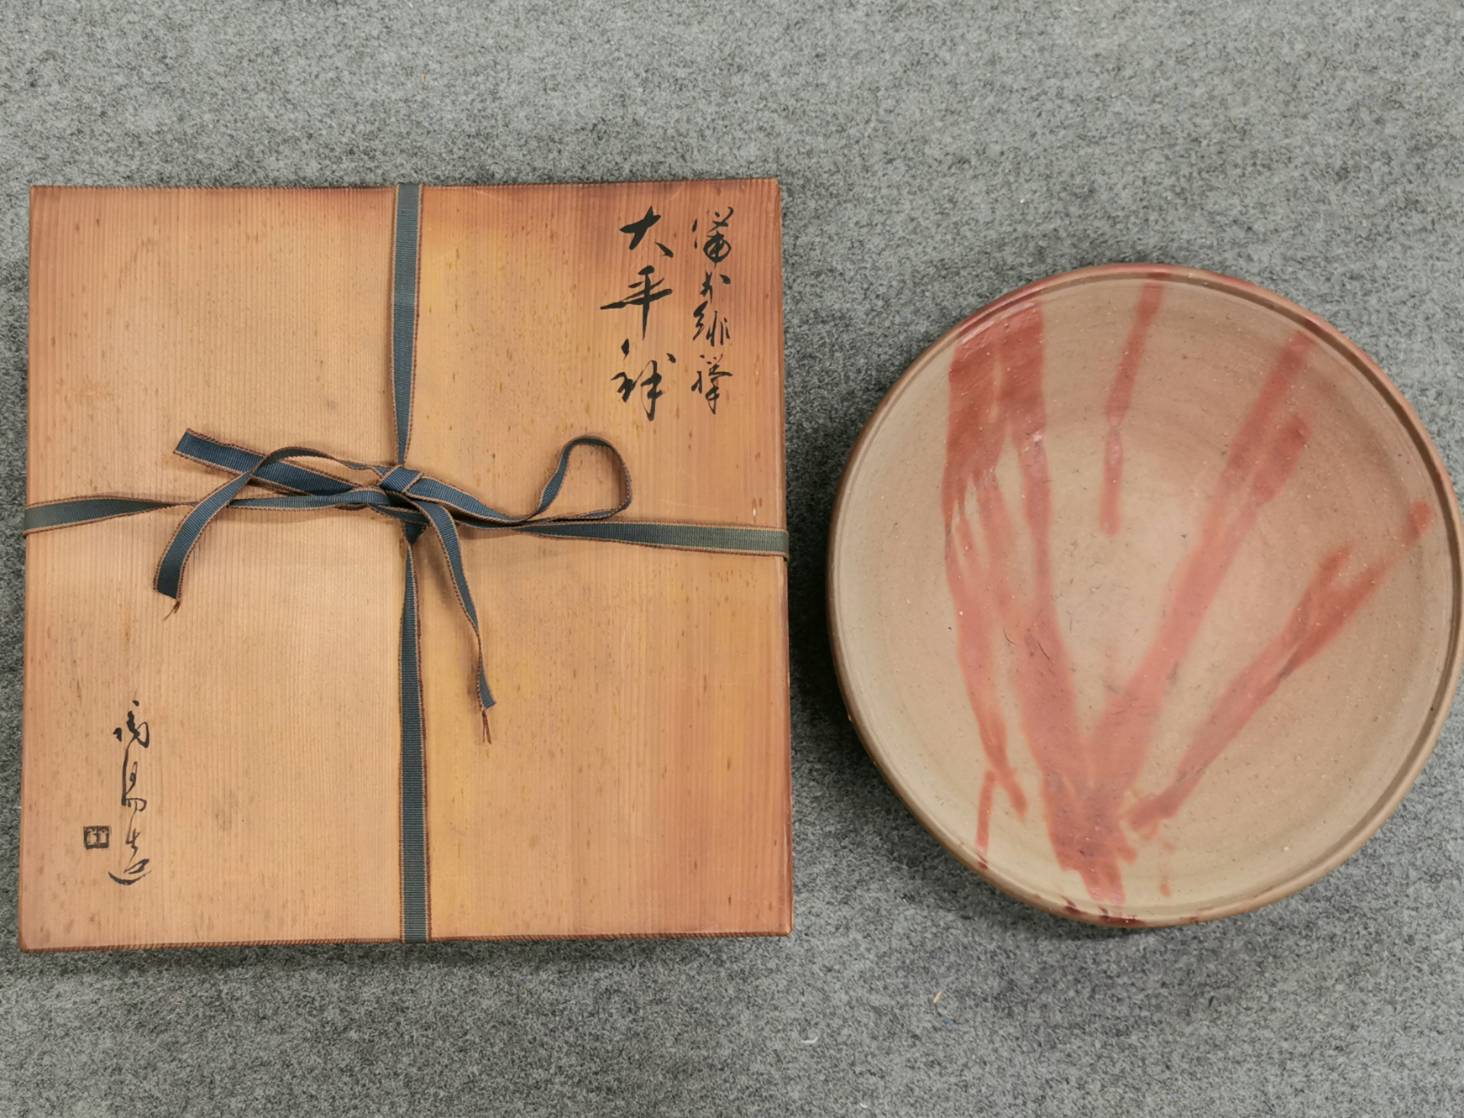 備前緋襷
大平鉢
陶陽造